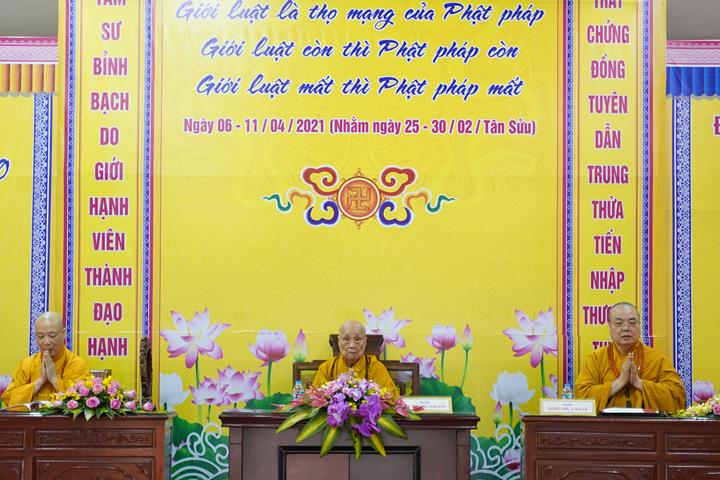 Giới luật là thọ mạng của Phật pháp
Giới luật còn thì Phật pháp còn
Giới luật mất thì Phật pháp mất
Ngày 06 - 11 / 04 / 2021 (Nhằm ngày 25 - 30 / 02 / Tân Sửu)
TAM
SƯ
BỈNH
BẠCH
DO
GIỚI
HẠNH
VIÊN
THÀNH
ĐẠO
HẠNH
THẤT
CHỨNG
ĐỒNG
TUYÊN
DẪN
TRUNG
THỪA
TIẾN
NHẬP